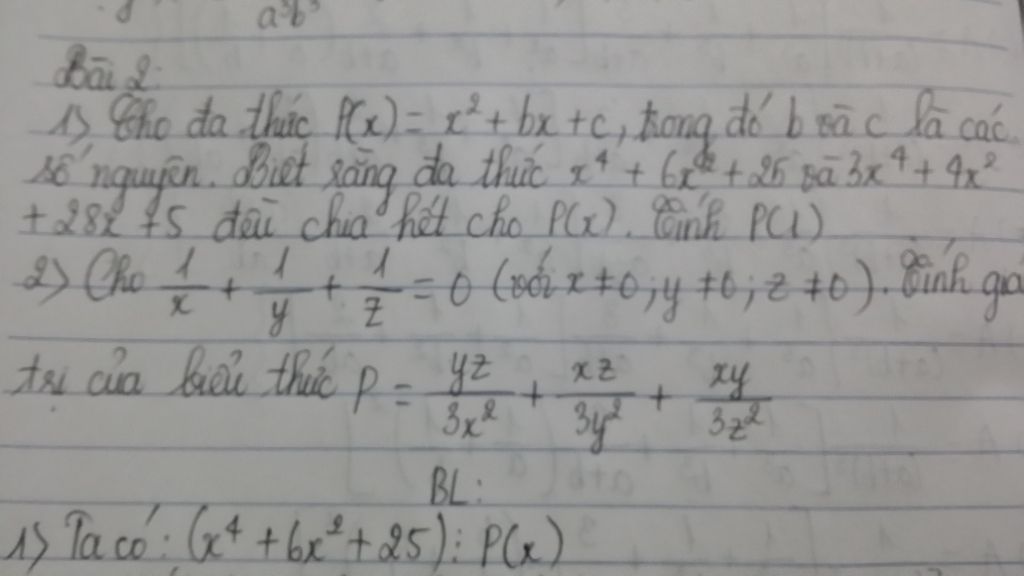 a³b³
Bài 2:
1) Cho đa thức P(x) = x² + bx + c, trong đó b và c là các
số nguyên. Biết rằng đa thức x⁴ + 6x² + 25 và 3x⁴ + 4x²
+ 28x + 5 đều chia hết cho P(x). Tính P(1)
2) Cho 1/x + 1/y + 1/z = 0 (với x ≠ 0; y ≠ 0; z ≠ 0). Tính giá
trị của biểu thức P = yz/3x² + xz/3y² + xy/3z²
BL:
1) Ta có: (x⁴ + 6x² + 25) ⋮ P(x)